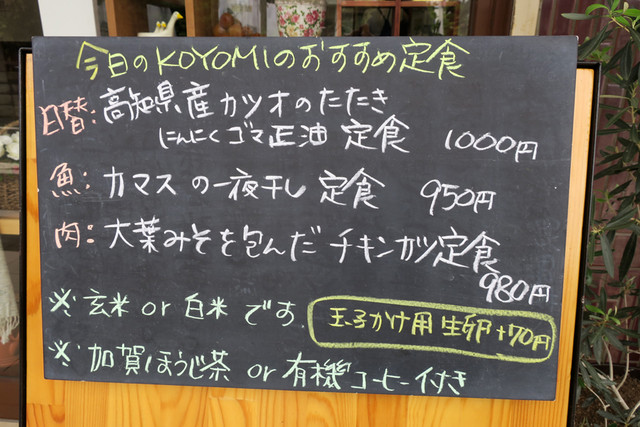 今日のKOYOMIのおすすめ定食
日替:高知県産カツオのたたき
にんにくゴマ正油 定食 1000円
魚:カマスの一夜干し 定食 950円
肉:大葉みそを包んだチキンカツ定食
980円
※玄米 or 白米 です.
玉子かけ用 生卵 +70円
※加賀ほうじ茶 or 有機コーヒー付き